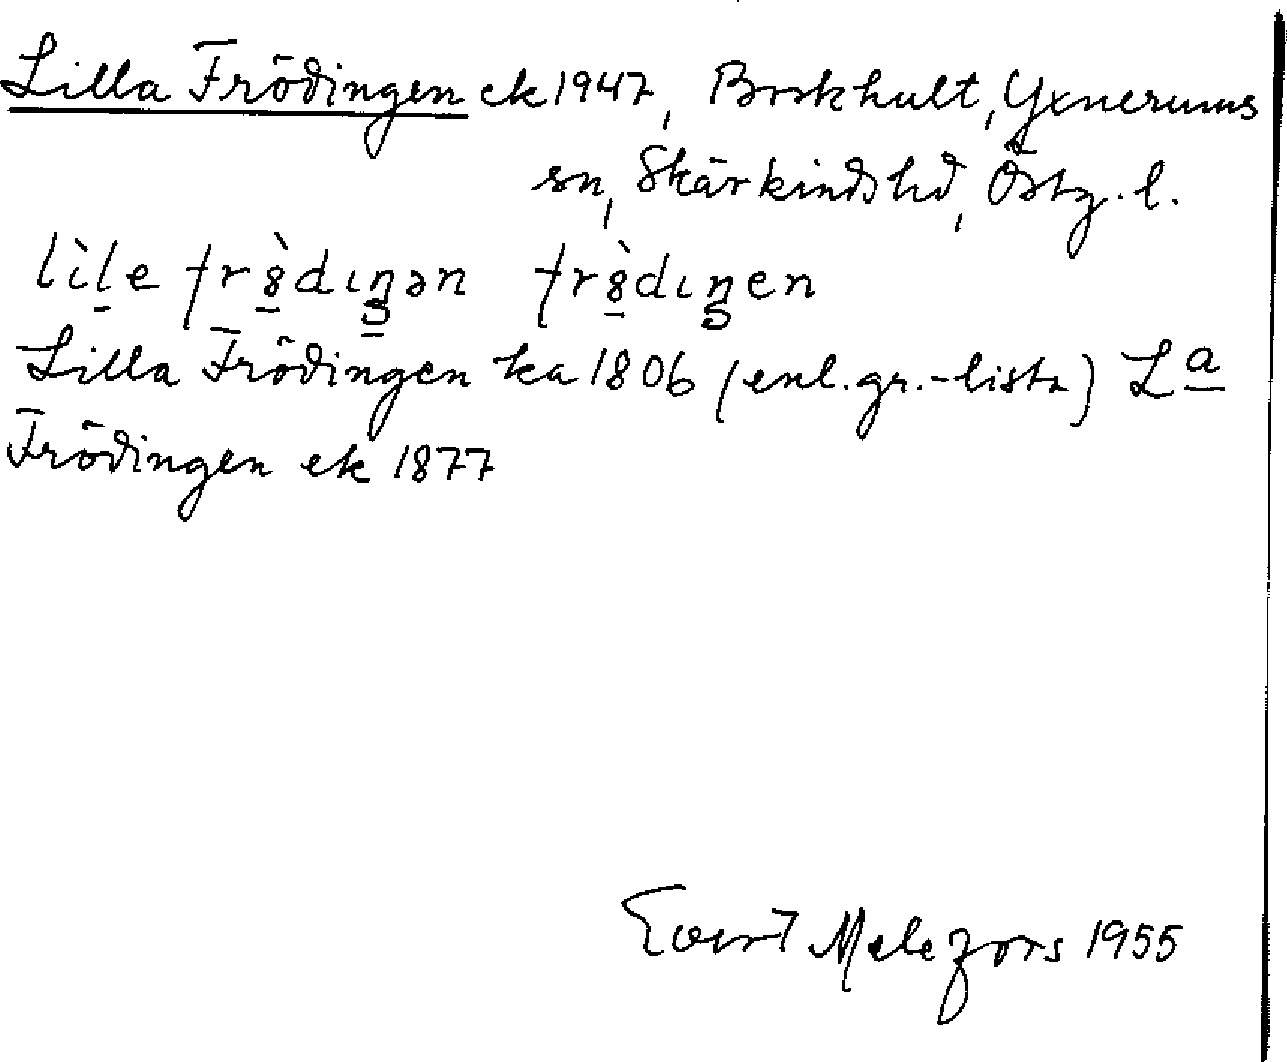 Lilla Frödingen ek 1947, Borkhult, Yxnerums
sn, Skärkinds hd, Östg. l.
lìl̲e fr8̲̀dıŋən fr8̲̀dıŋen
Lilla Frödingen ka 1806 (enl. gr.-lista) L<u>a</u>
Frödingen ek 1877
Evert Melefors 1955